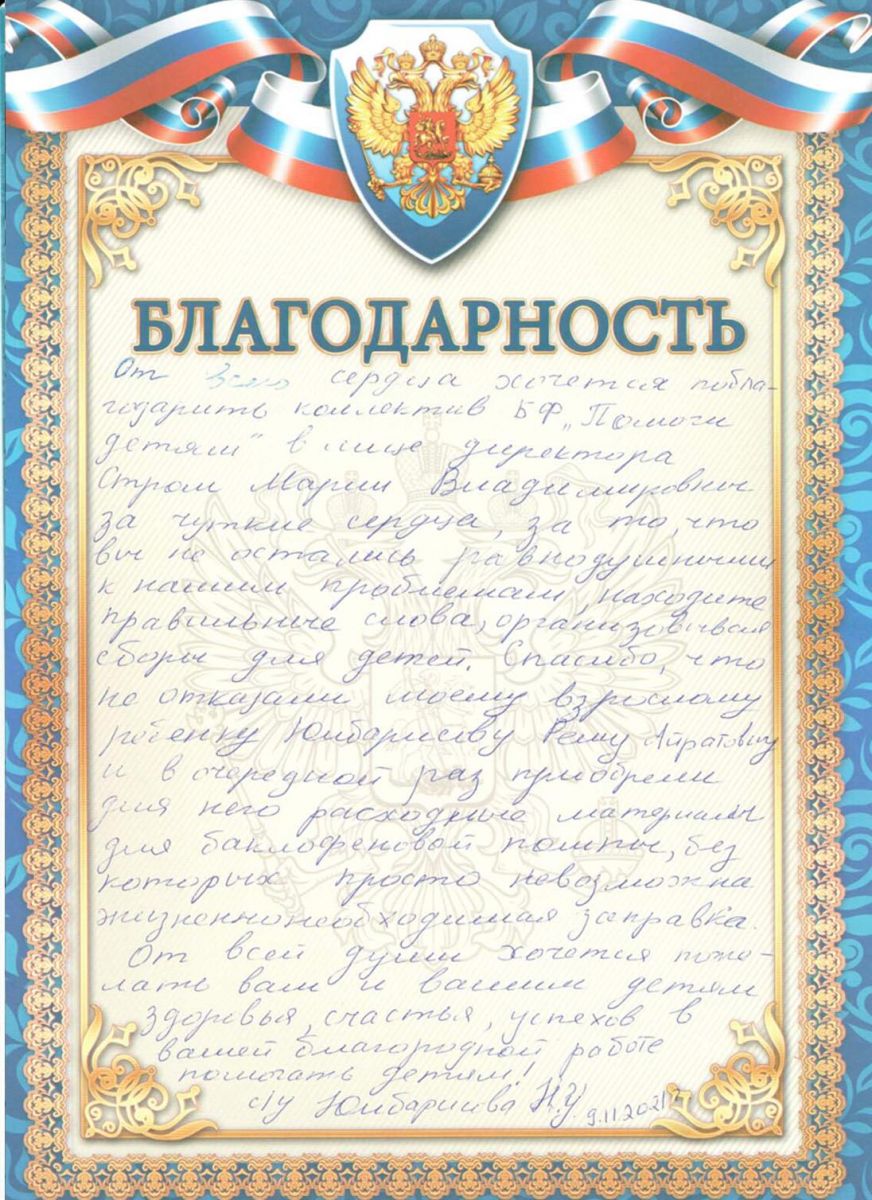 БЛАГОДАРНОСТЬ
От всего сердца хочется побла-
годарить коллектив БФ „Помоги
детям" в лице директора
Стром Марии Владимировны
за чуткие сердца, за то, что
вы не остались равнодушными
к нашим проблемам, находите
правильные слова,
сборы для детей. Спасибо, что
не отказали моему взрослому
ребенку Юмбарисову Айратовичу
и в очередной раз приобрели
для него расходные материалы
для баклофеновой помпы, без
которых просто невозможна
жизненнонеобходимая заправка.
От всей души хочется поже-
лать вам и вашим детям
здоровья, счастья, успехов в
вашей благородной работе
помогать детям!
с/у Юмбарисова 9.11.2021г